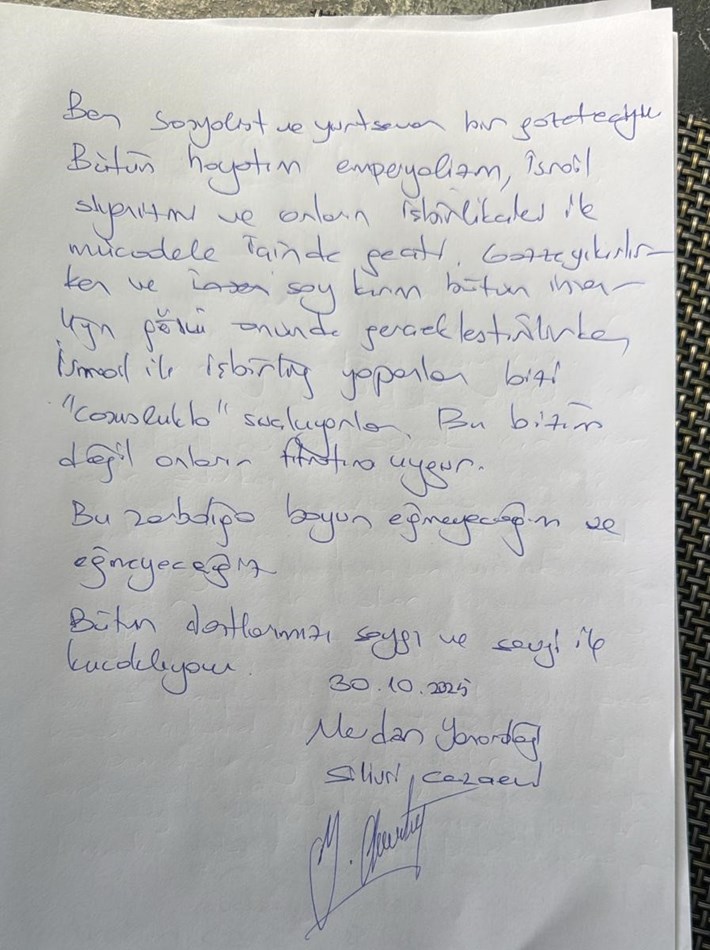 Ben sosyalist ve yurtsever bir gazeteciyim
Bütün hayatım emperyalizm, İsrail
siyonizmi ve onların işbirlikçileri ile
mücadele içinde geçti. Gazze yıkılır-
ken ve soy kırım bütün insan-
lığın gözü önünde gerçekleştirilirken,
İsrail ile işbirliği yapanlar bizi
"casuslukla" suçluyorlar. Bu bizim
değil onların fıtratına uygun.
Bu zorbalığa boyun eğmeyeceğim ve
eğmeyeceğiz
Bütün dostlarımızı saygı ve sevgi ile
kucaklıyorum.
30.10.2025
Merdan Yanardağ
Silivri Cezaevi